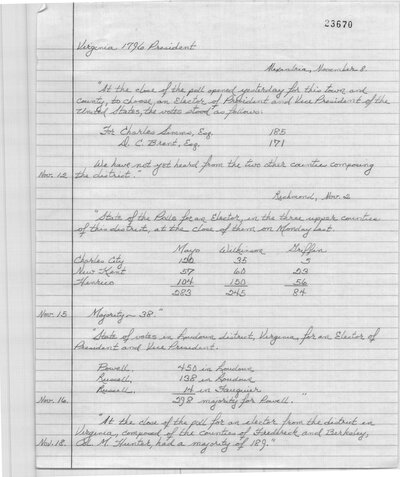 23670
Virginia 1796 President
Alexandria, November 8
"At the close of the poll opened yesterday for this town and
county, to choose an Elector of President and Vice President of the
United States, the votes stood as follows:
For Charles Simms, Esq. 185
D. C. Brent, Esq. 171
We have not yet heard from the two other counties composing
Nov. 12. the district."
Richmond, Nov. 2
"State of the Polls for an Elector, in the three upper counties
of this district, at the close of them on Monday last.
Mayo Wilkinson Griffin
Charles City 120 35 5
New Kent 57 60 23
Henrico 104 150 56
283 245 84
Nov. 15. Majority - 38."
"State of votes in Loudoun district, Virginia, for an Elector of
President and Vice President.
Powell, 450 in Loudoun
Russell, 138 in Loudoun
Russell, 14 in Fauquier
Nov. 16. 298 majority for Powell."
"At the close of the poll for an elector from the district in
Virginia, composed of the counties of Frederick and Berkeley,
Nov. 18. Col. M. Hunter, had a majority of 189."